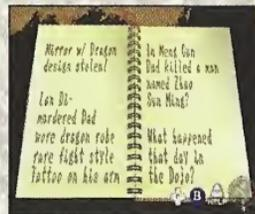 Mirror w/ Dragon
design stolen!
Lan Di-
murdered Dad
wore dragon robe
rare fight style
tattoo on his arm
In Meng Cun
Dad killed a man
named Zhao
Sun Ming?
What happened
that day in
the Dojo?
B